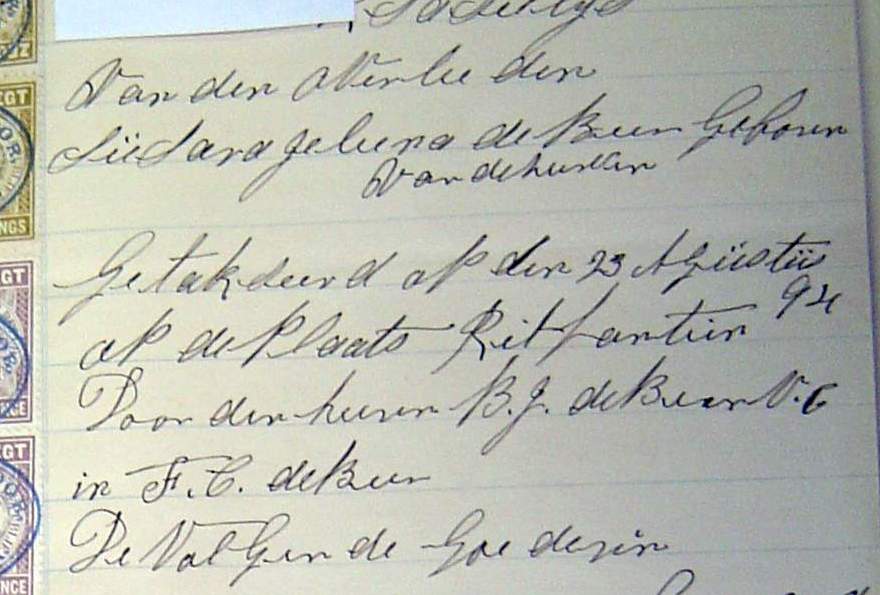 Van den overleeden
Susara Jeliena de Beer Geboren
Van de heever
Getakseerd op den 23 Agüstüs
94
op de Plaats Rietfontein
Door den heeren B. J. de Beer V. C
in F. C. de Beer
De Volgende Goederen
EGT
NGS
EGT
NCE
EGT
NCE